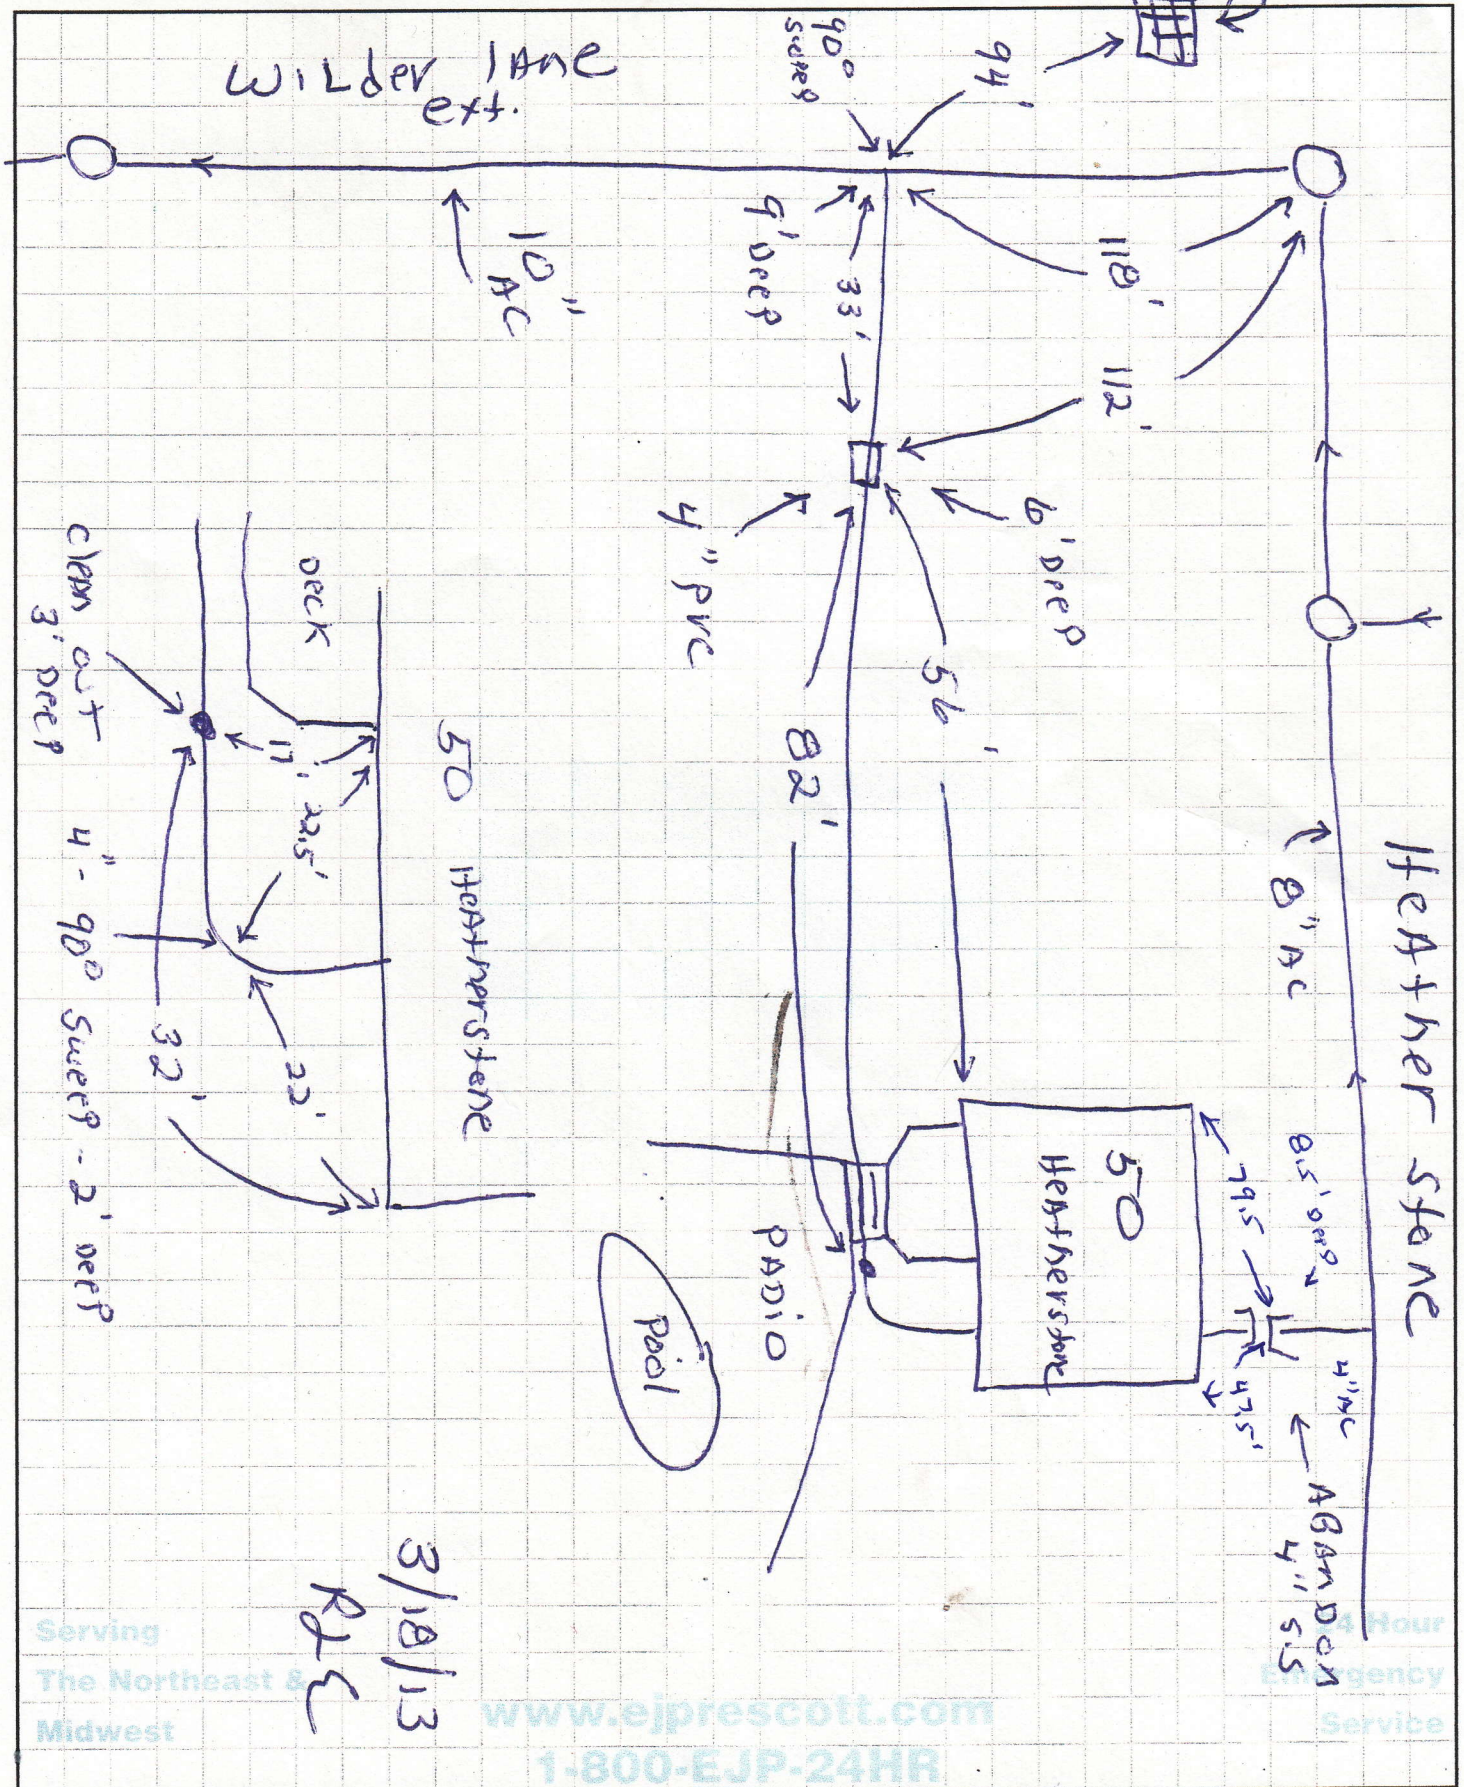 WILder lane
ext.
90°
sweep
94'
10"
AC
9' Deep
33'
118'
112'
6' Deep
4" PVC
56'
82'
Heather stone
8" AC
8.5' Deep
79.5
47.5'
4" AC
ABANDON
4" S.S
50
Heatherstone
PADiO
Pool
50 Heatherstone
Deck
clean out
3' Deep
17'
22.5'
4" - 90° sweep - 2' Deep
32'
22'
3/18/13
Serving
The Northeast &
Midwest
www.ejprescott.com
1-800-EJP-24HR
24 Hour
Emergency
Service